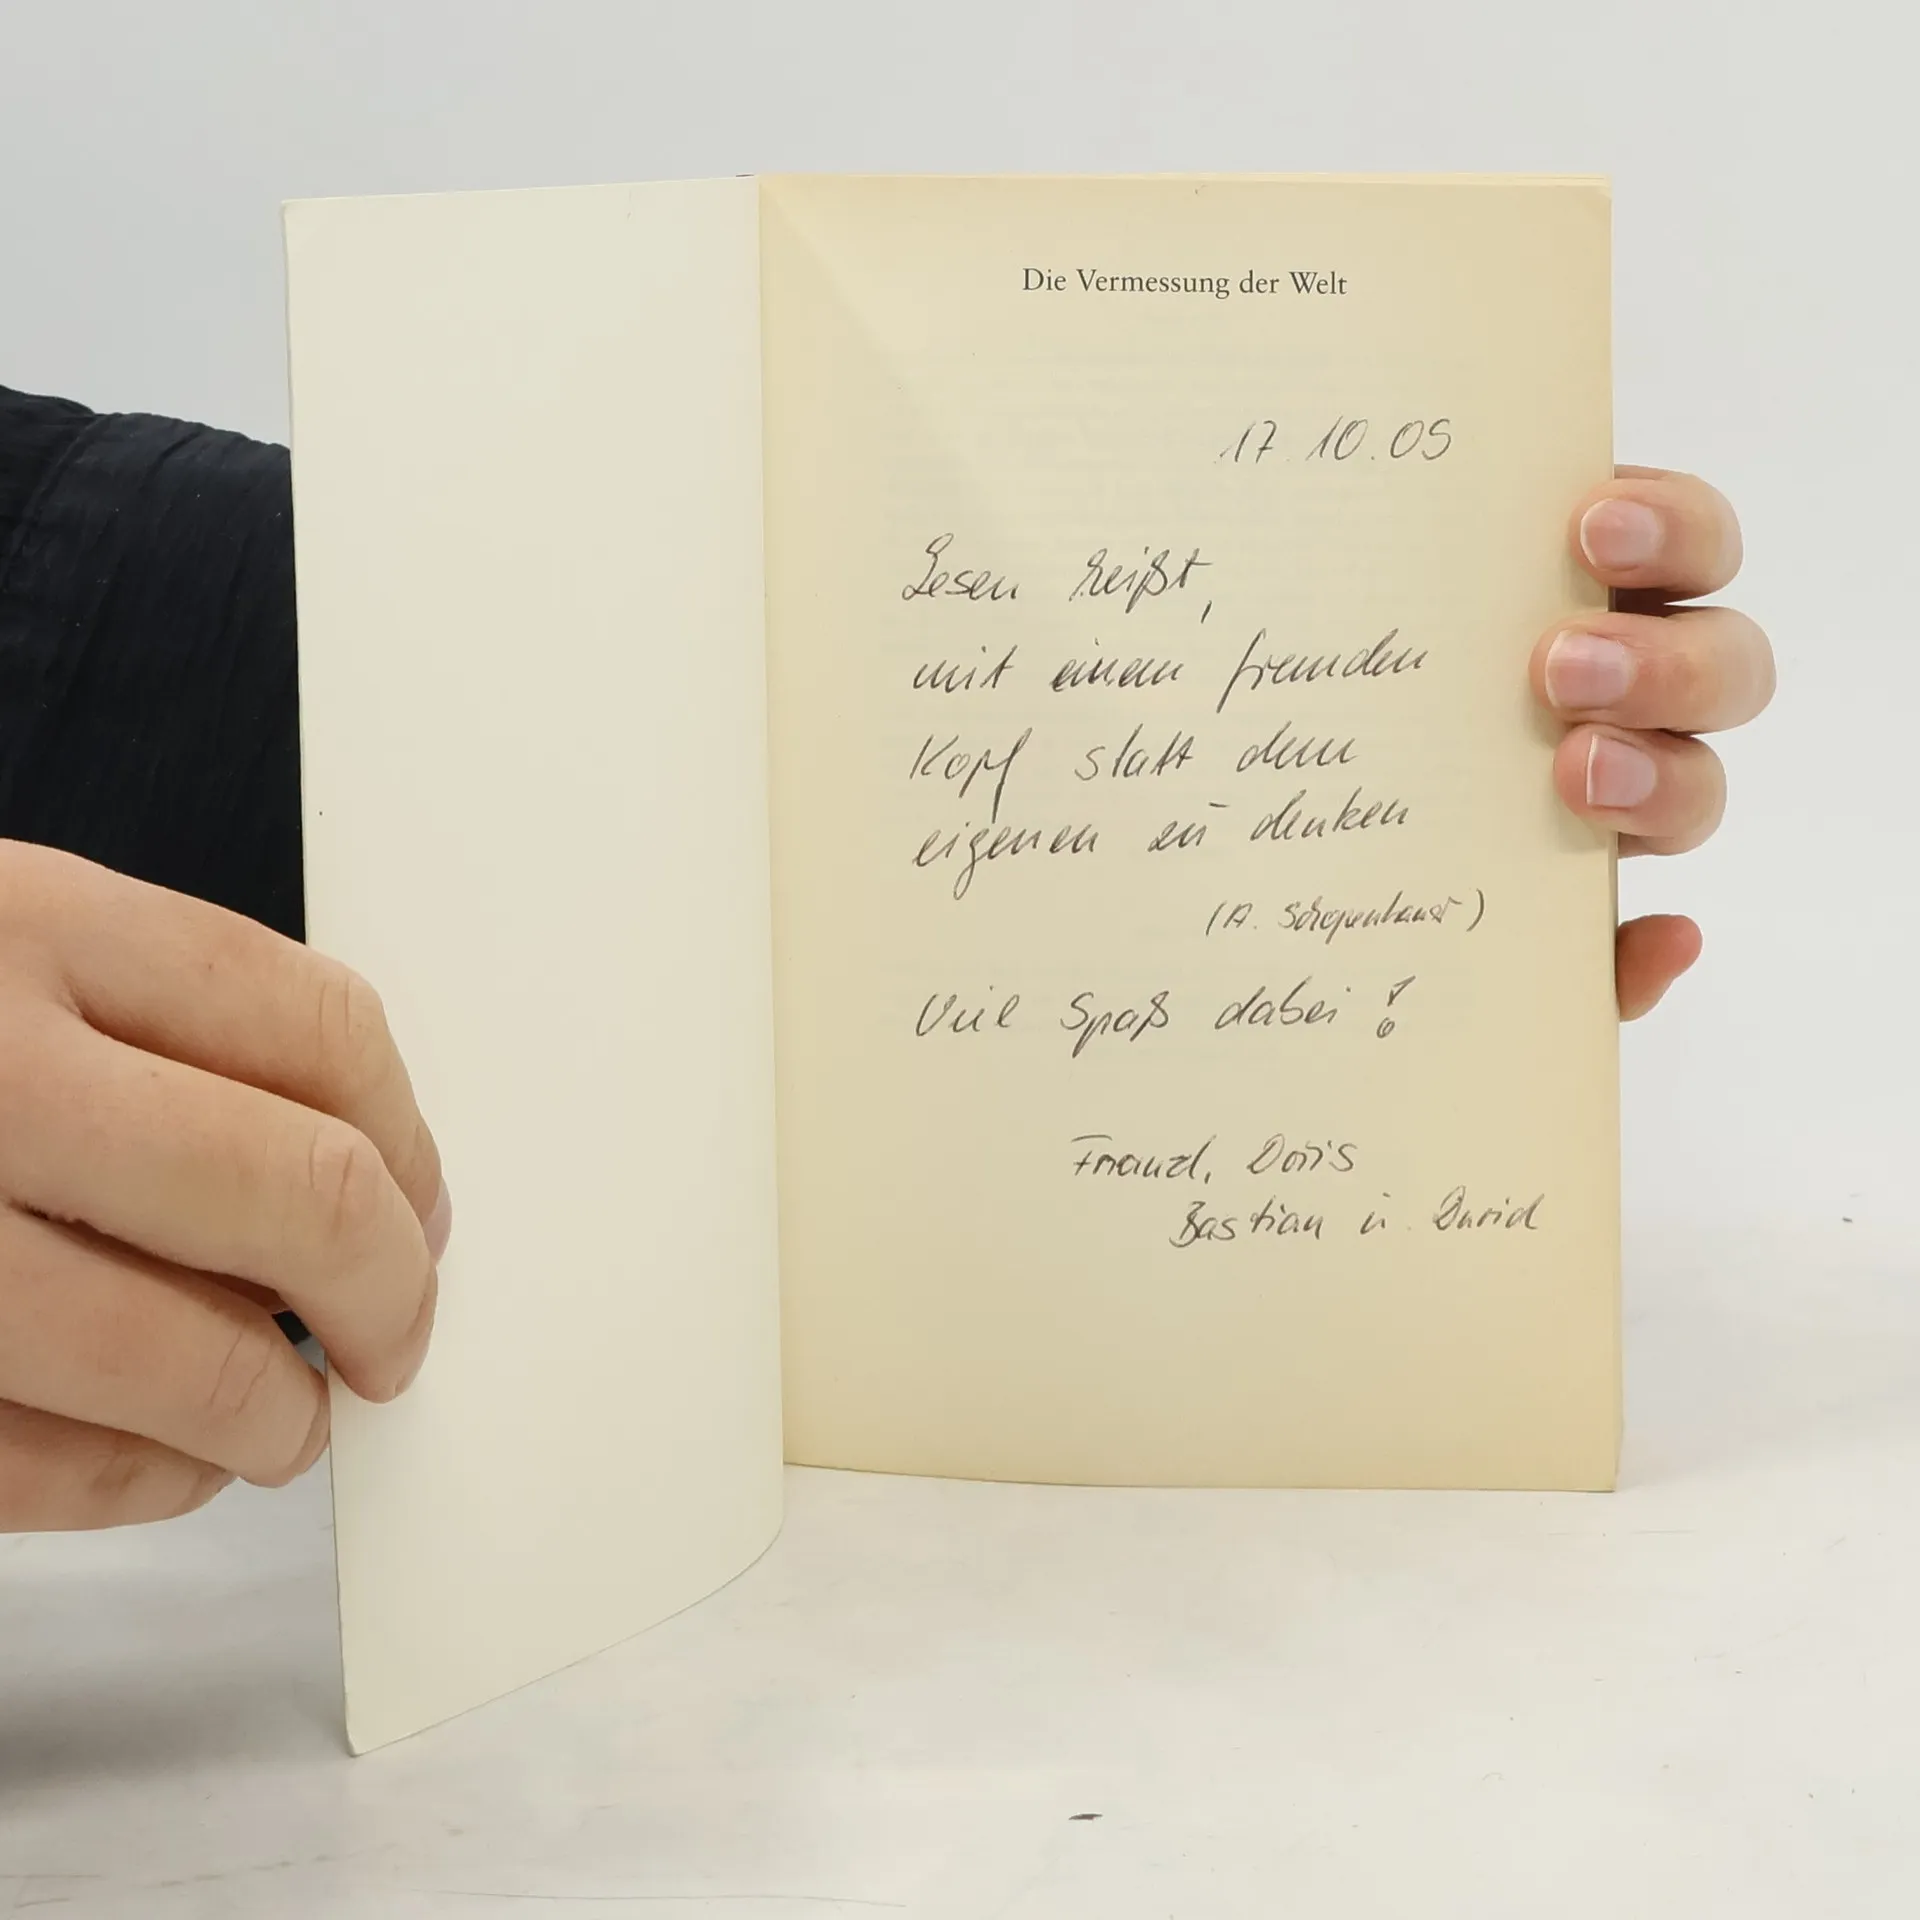 Die Vermessung der Welt
17.10.05
Lesen heißt,
mit einem fremden
Kopf statt dem
eigenen zu denken
(A. Schopenhauer)
Viel Spaß dabei!
Doris
Bastian u. David